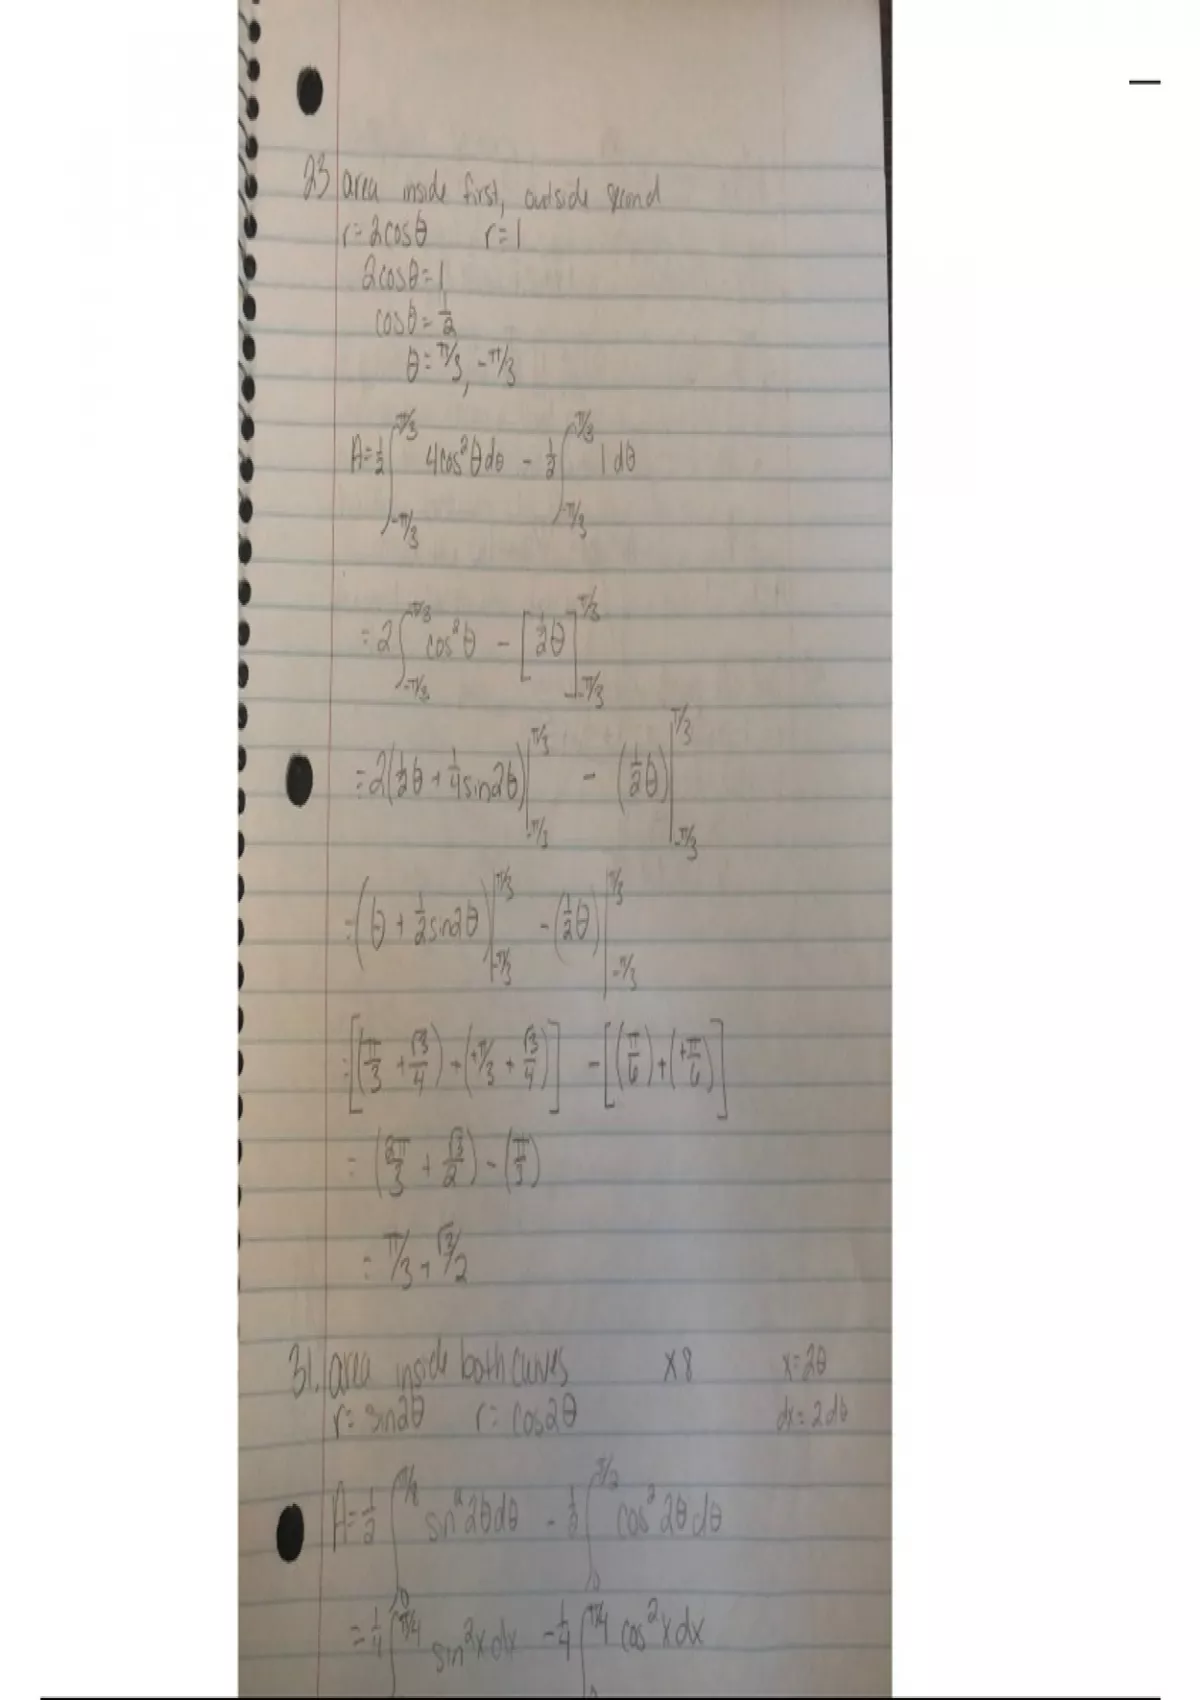 23 area inside first, outside second
r=2cosθ r=1
2cosθ=1
cosθ=1/2
θ=π/3, -π/3
A=1/2∫_{-π/3}^{π/3} 4cos²θdθ - 1/2∫_{-π/3}^{π/3} 1dθ
=2∫_{-π/3}^{π/3} cos²θ - [1/2θ]_{-π/3}^{π/3}
=2(1/2θ+1/4sin2θ)|_{-π/3}^{π/3} - (1/2θ)|_{-π/3}^{π/3}
=(θ+1/2sin2θ)|_{-π/3}^{π/3} - (1/2θ)|_{-π/3}^{π/3}
=[(π/3+√3/4)+(+π/3+√3/4)] - [(π/6)+(+π/6)]
=(2π/3+√3/2)-(π/3)
=π/3+√3/2
31. area inside both curves x8 x=2θ
r=sin2θ r=cos2θ dx=2dθ
A=1/2∫_{0}^{π/8} sin²2θdθ - 1/2∫_{0}^{π/2} cos²2θdθ
=1/4∫^{π/4} sin²xdx - 1/4∫_{0}^{π/4} cos²xdx